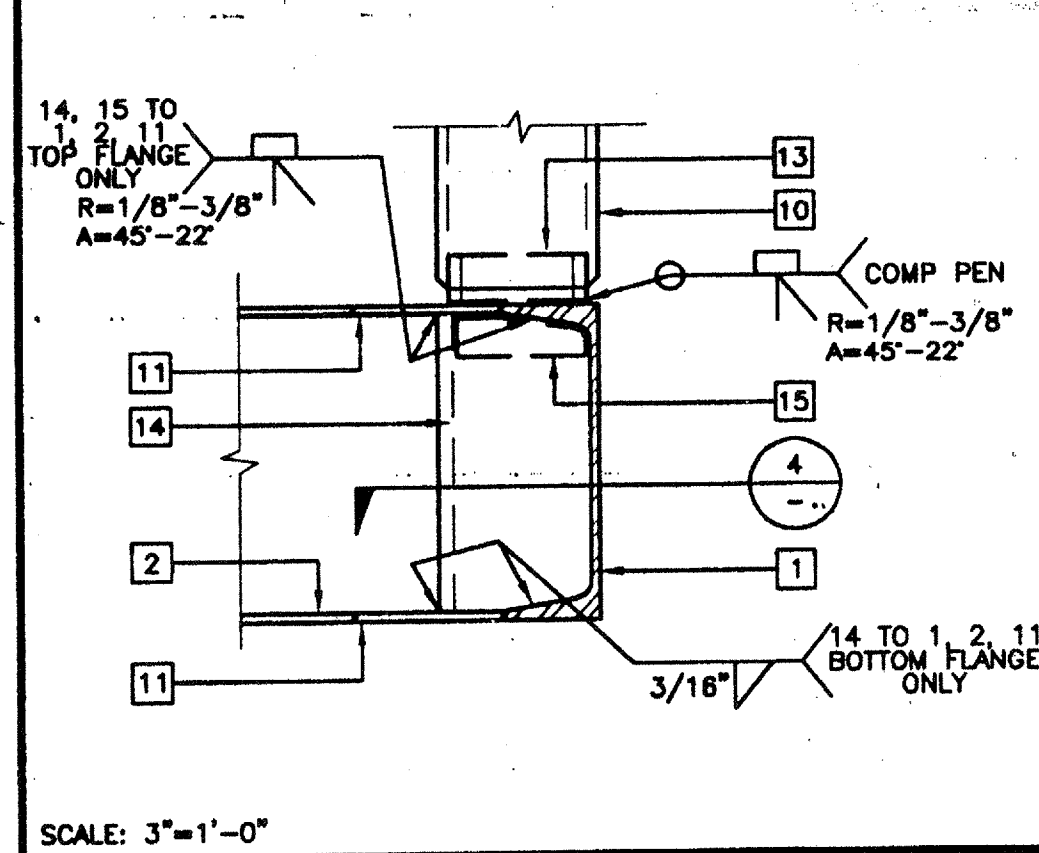 14, 15 TO
1, 2, 11
TOP FLANGE
ONLY
R=1/8"-3/8"
A=45°-22°
13
10
COMP PEN
R=1/8"-3/8"
A=45°-22°
11
14
15
4
-
2
1
11
14 TO 1, 2, 11
BOTTOM FLANGE
ONLY
3/16"
SCALE: 3"=1'-0"